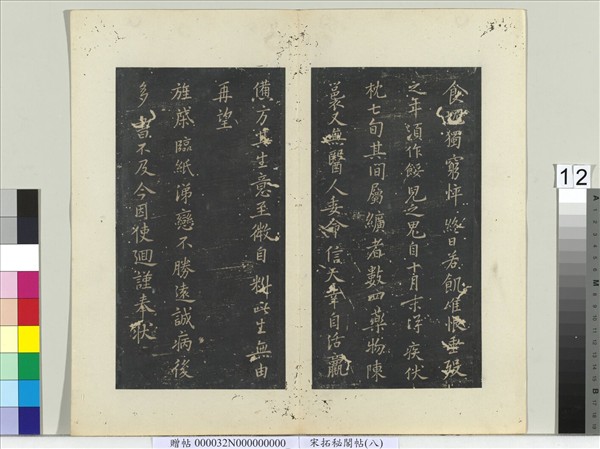 食獨窮悴終日若飢唯恨垂歿
之年須作餒死之鬼自十月末得疾伏
枕七旬其間屬纊者數四藥物陳
裛又無醫人委命信天幸自活羸
憊方甚生意至微自料此生無由
再望
旌棨臨紙涕戀不勝遠誠病後
多書不及今因使迴謹奉狀
12
贈帖 000032N000000000_ 宋拓秘閣帖(八)